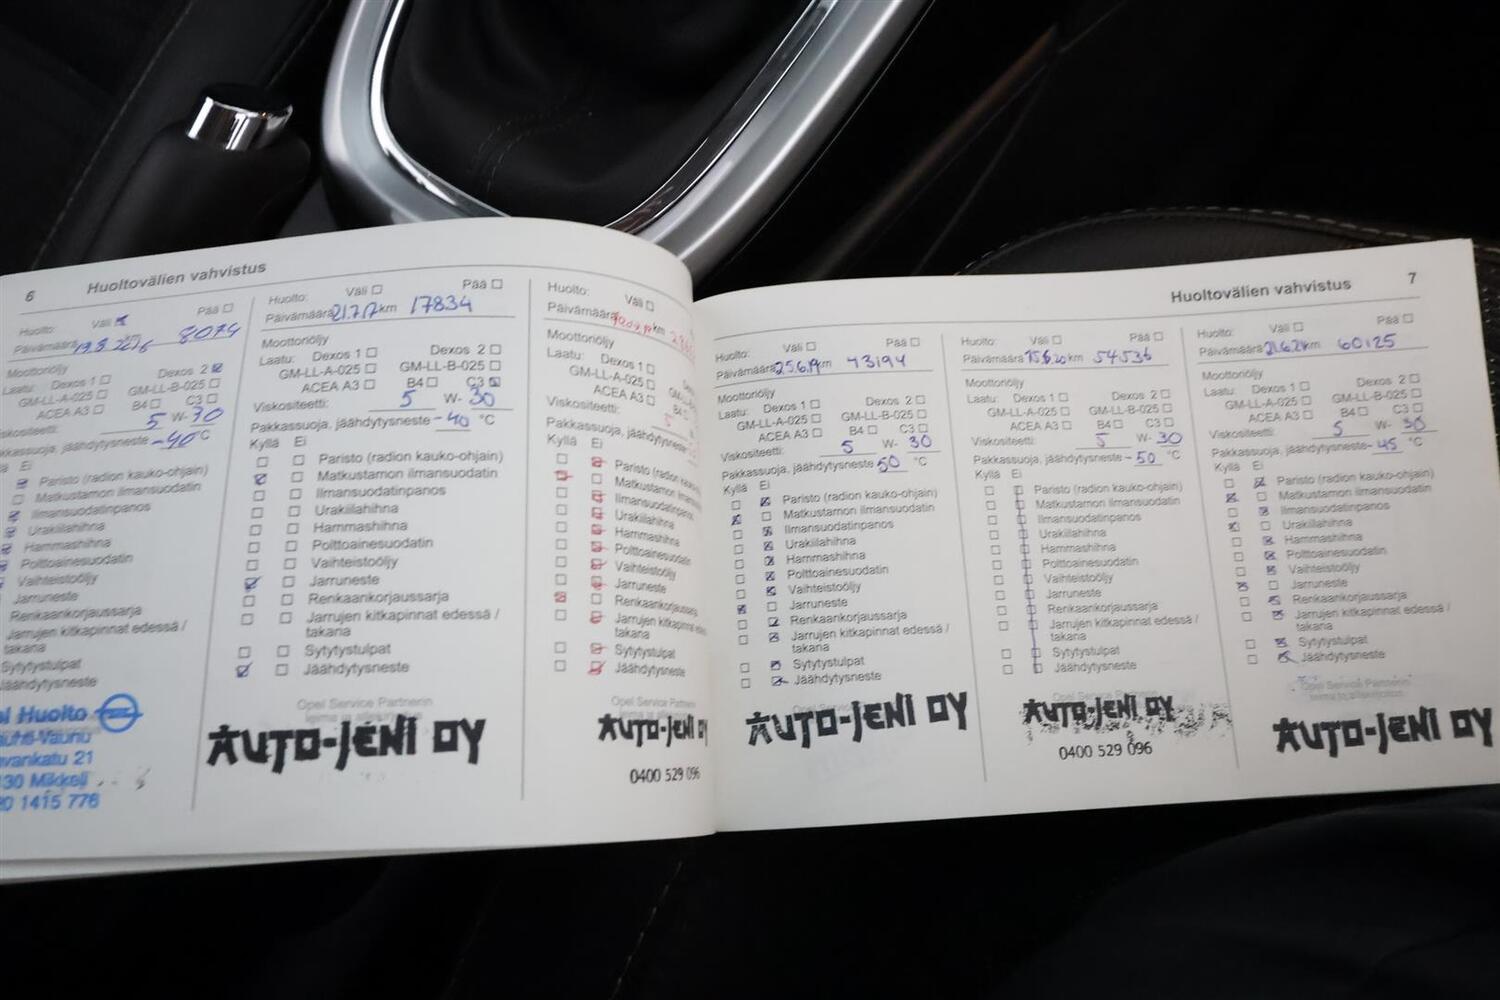 6 Huoltovälien vahvistus
Huolto: Väli Pää
Päivämäärä 19.8.2016 8074
Moottoriöljy
Laatu: Dexos 1 Dexos 2
GM-LL-A-025 GM-LL-B-025
ACEA A3 B4 C3
skositeetti: 5 W- 30
kkassuoja, jäähdytysneste -40 °C
Ei
Paristo (radion kauko-ohjain)
Matkustamon ilmansuodatin
Ilmansuodatinpanos
Urakiilahihna
Hammashihna
Polttoainesuodatin
Vaihteistoöljy
Jarruneste
Renkaankorjaussarja
Jarrujen kitkapinnat edessä /
takana
Sytytystulpat
Jäähdytysneste
el Huolto
auhti-Vaunu
vankatu 21
130 Mikkeli
20 1415 776
Huolto: Väli Pää
Päivämäärä 21.7.17 km 17834
Moottoriöljy
Laatu: Dexos 1 Dexos 2
GM-LL-A-025 GM-LL-B-025
ACEA A3 B4 C3
Viskositeetti: 5 W- 30
Pakkassuoja, jäähdytysneste -40 °C
Kyllä Ei
Paristo (radion kauko-ohjain)
Matkustamon ilmansuodatin
Ilmansuodatinpanos
Urakiilahihna
Hammashihna
Polttoainesuodatin
Vaihteistoöljy
Jarruneste
Renkaankorjaussarja
Jarrujen kitkapinnat edessä /
takana
Sytytystulpat
Jäähdytysneste
Opel Service Partnerin
leima ja allekirjoitus
AUTO-JENI OY
Huolto: Väli
Päivämäärä km
Moottoriöljy
Laatu: Dexos 1
GM-LL-A-025
ACEA A3 B4
Viskositeetti: 5
Pakkassuoja, jäähdytysneste
Kyllä Ei
Paristo (radion
Matkustamon
Ilmansuodatinpanos
Urakiilahihna
Hammashihna
Polttoainesuodatin
Vaihteistoöljy
Jarruneste
Renkaankorjaussarja
Jarrujen kitkapinnat
takana
Sytytystulpat
Jäähdytysneste
AUTO-JENI OY
0400 529 096
Huoltovälien vahvistus 7
Huolto: Väli Pää
Päivämäärä 25.6.19 km 43194
Moottoriöljy
Laatu: Dexos 1 Dexos 2
GM-LL-A-025 GM-LL-B-025
ACEA A3 B4 C3
Viskositeetti: 5 W- 30
Pakkassuoja, jäähdytysneste 50 °C
Kyllä Ei
Paristo (radion kauko-ohjain)
Matkustamon ilmansuodatin
Ilmansuodatinpanos
Urakiilahihna
Hammashihna
Polttoainesuodatin
Vaihteistoöljy
Jarruneste
Renkaankorjaussarja
Jarrujen kitkapinnat edessä /
takana
Sytytystulpat
Jäähdytysneste
AUTO-JENI OY
Huolto: Väli Pää
Päivämäärä 15.6.20 km 54536
Moottoriöljy
Laatu: Dexos 1 Dexos 2
GM-LL-A-025 GM-LL-B-025
ACEA A3 B4 C3
Viskositeetti: 5 W- 30
Pakkassuoja, jäähdytysneste -50 °C
Kyllä Ei
Paristo (radion kauko-ohjain)
Matkustamon ilmansuodatin
Ilmansuodatinpanos
Urakiilahihna
Hammashihna
Polttoainesuodatin
Vaihteistoöljy
Jarruneste
Renkaankorjaussarja
Jarrujen kitkapinnat edessä /
takana
Sytytystulpat
Jäähdytysneste
Opel Service Partnerin
AUTO-JENI OY
0400 529 096
Huolto: Väli Pää
Päivämäärä 21.6.21 km 60125
Moottoriöljy
Laatu: Dexos 1 Dexos 2
GM-LL-A-025 GM-LL-B-025
ACEA A3 B4 C3
Viskositeetti: 5 W- 30
Pakkassuoja, jäähdytysneste -45 °C
Kyllä Ei
Paristo (radion kauko-ohjain)
Matkustamon ilmansuodatin
Ilmansuodatinpanos
Urakiilahihna
Hammashihna
Polttoainesuodatin
Vaihteistoöljy
Jarruneste
Renkaankorjaussarja
Jarrujen kitkapinnat edessä /
takana
Sytytystulpat
Jäähdytysneste
Opel Service Partnerin
leima ja allekirjoitus
AUTO-JENI OY